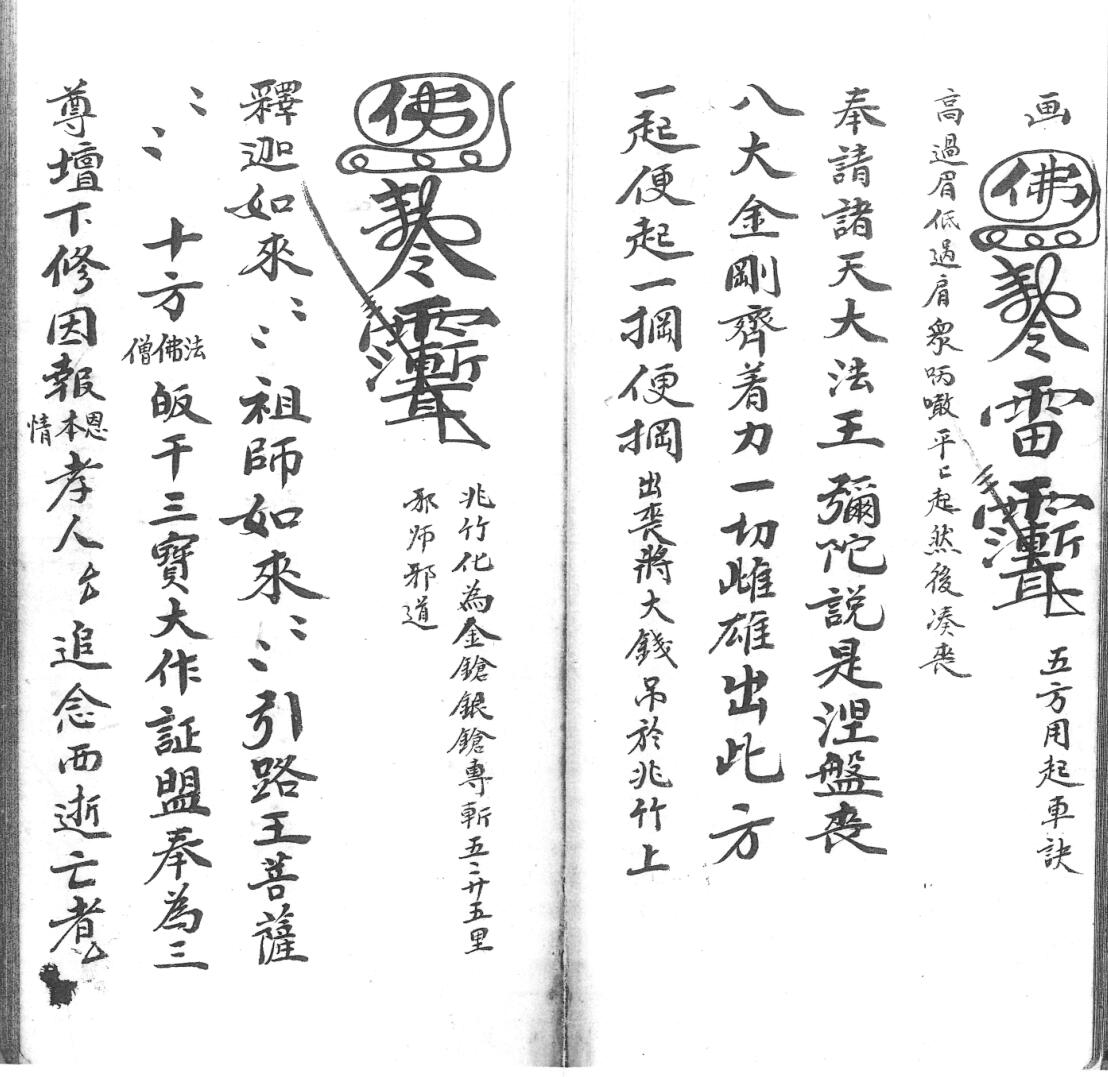 画 佛 雷 五方用起車訣
高過眉低過肩衆吶噉平〻起然後凑喪
奉請諸天大法王彌陀説是涅盤喪
八大金剛齊着力一切雌雄出此方
一起便起一掆便掆出喪將大錢吊於兆竹上
佛 兆竹化為金鎗銀鎗專斬五〻廿五里
邪师邪道
釋迦如來〻〻祖師如來〻〻引路王菩薩
〻〻十方法佛僧皈干三寶大作証盟奉為三
尊壇下修因報恩本情孝人厶追念西逝亡者厶